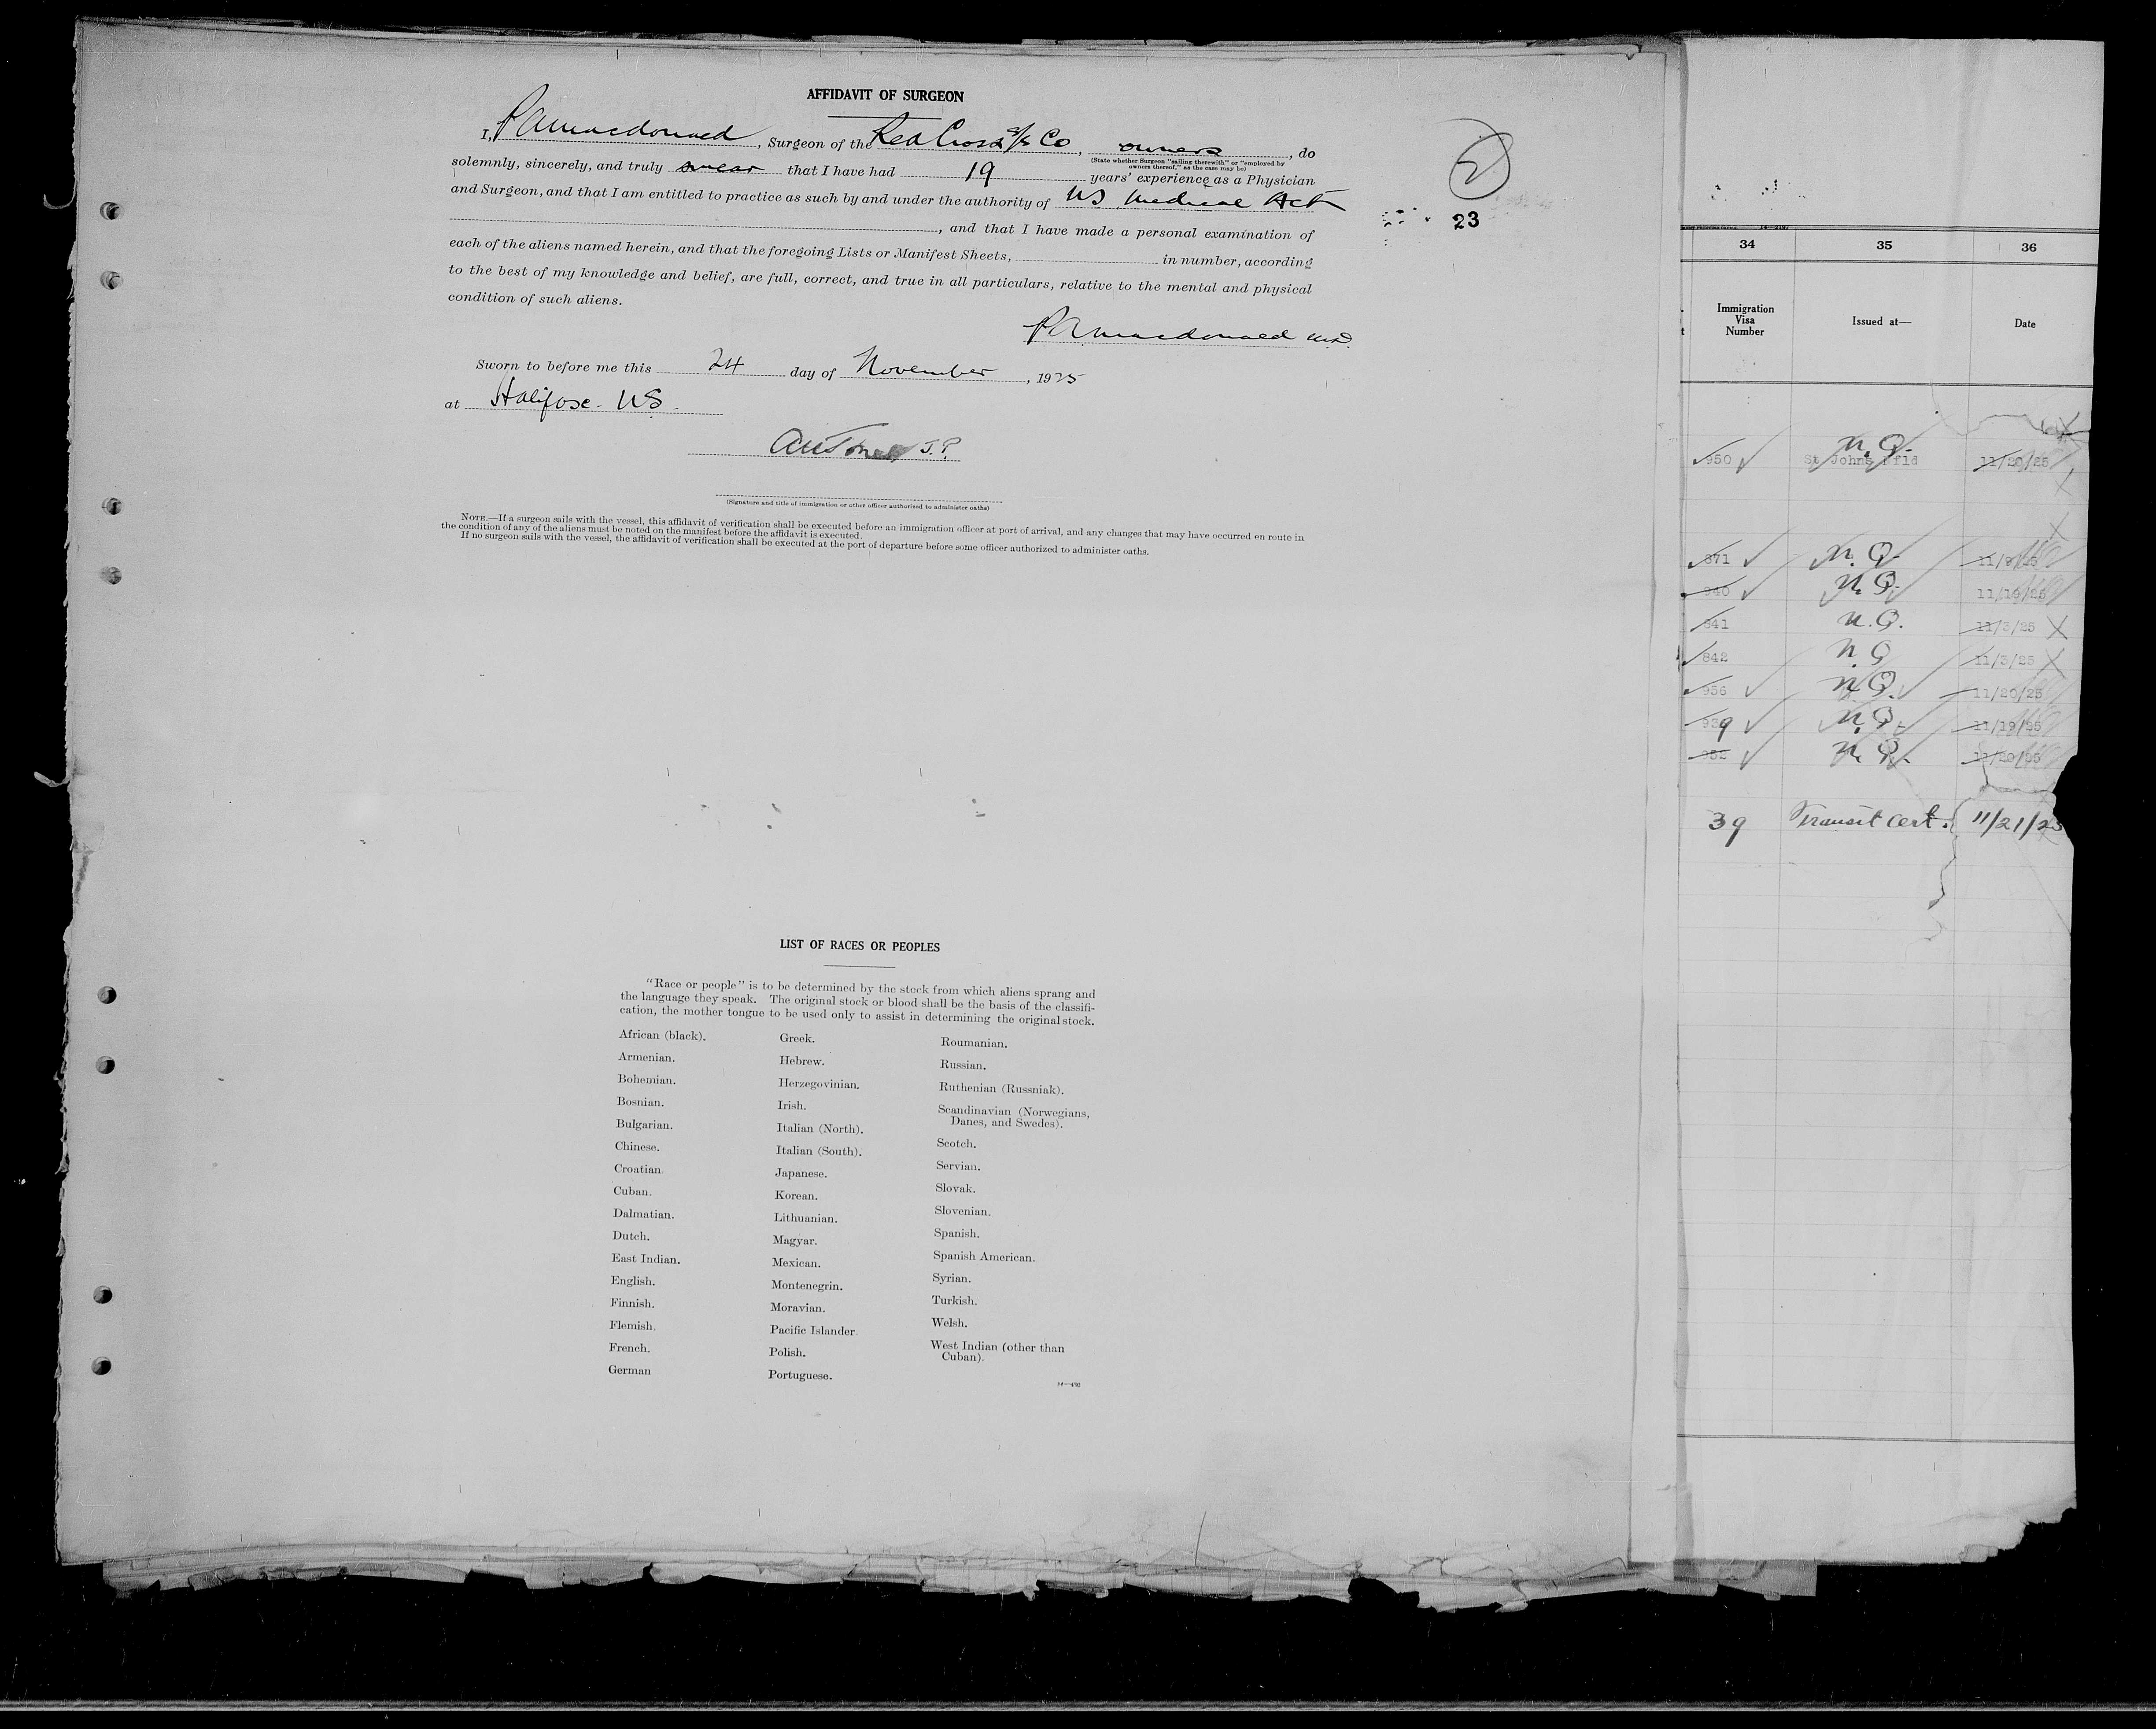 AFFIDAVIT OF SURGEON
I, P A Macdonald, Surgeon of the Red Cross S/S Co, owners, do
(State whether Surgeon "sailing therewith" or "employed by
owners thereof," as the case may be)
solemnly, sincerely, and truly swear that I have had 19 years' experience as a Physician
and Surgeon, and that I am entitled to practice as such by and under the authority of NS Medical Act
, and that I have made a personal examination of
each of the aliens named herein, and that the foregoing Lists or Manifest Sheets, in number, according
to the best of my knowledge and belief, are full, correct, and true in all particulars, relative to the mental and physical
condition of such aliens.
P A Macdonald M.D.
Sworn to before me this 24 day of November, 1925
at Halifax - NS.
J.P.
(Signature and title of immigration or other officer authorized to administer oaths)
NOTE.—If a surgeon sails with the vessel, this affidavit of verification shall be executed before an immigration officer at port of arrival, and any changes that may have occurred en route in
the condition of any of the aliens must be noted on the manifest before the affidavit is executed.
If no surgeon sails with the vessel, the affidavit of verification shall be executed at the port of departure before some officer authorized to administer oaths.
2
23
LIST OF RACES OR PEOPLES
"Race or people" is to be determined by the stock from which aliens sprang and
the language they speak. The original stock or blood shall be the basis of the classifi-
cation, the mother tongue to be used only to assist in determining the original stock.
African (black).
Armenian.
Bohemian.
Bosnian.
Bulgarian.
Chinese.
Croatian.
Cuban.
Dalmatian.
Dutch.
East Indian.
English.
Finnish.
Flemish.
French.
German
Greek.
Hebrew.
Herzegovinian.
Irish.
Italian (North).
Italian (South).
Japanese.
Korean.
Lithuanian.
Magyar.
Mexican.
Montenegrin.
Moravian.
Pacific Islander.
Polish.
Portuguese.
Roumanian.
Russian.
Ruthenian (Russniak).
Scandinavian (Norwegians,
Danes, and Swedes).
Scotch.
Servian.
Slovak.
Slovenian.
Spanish.
Spanish American.
Syrian.
Turkish.
Welsh.
West Indian (other than
Cuban).
34 35 36
Immigration
Visa
Number
Issued at—
Date
N.Q.
950 St Johns Nfld 11/20/25
871 N.Q. 11/9/25
940 N.Q. 11/19/25
841 N.Q. 11/3/25
842 N.Q 11/3/25
956 N.Q. 11/20/25
939 N.Q. 11/19/25
952 N.Q. 11/20/25
39 Transit Cert. 11/21/25